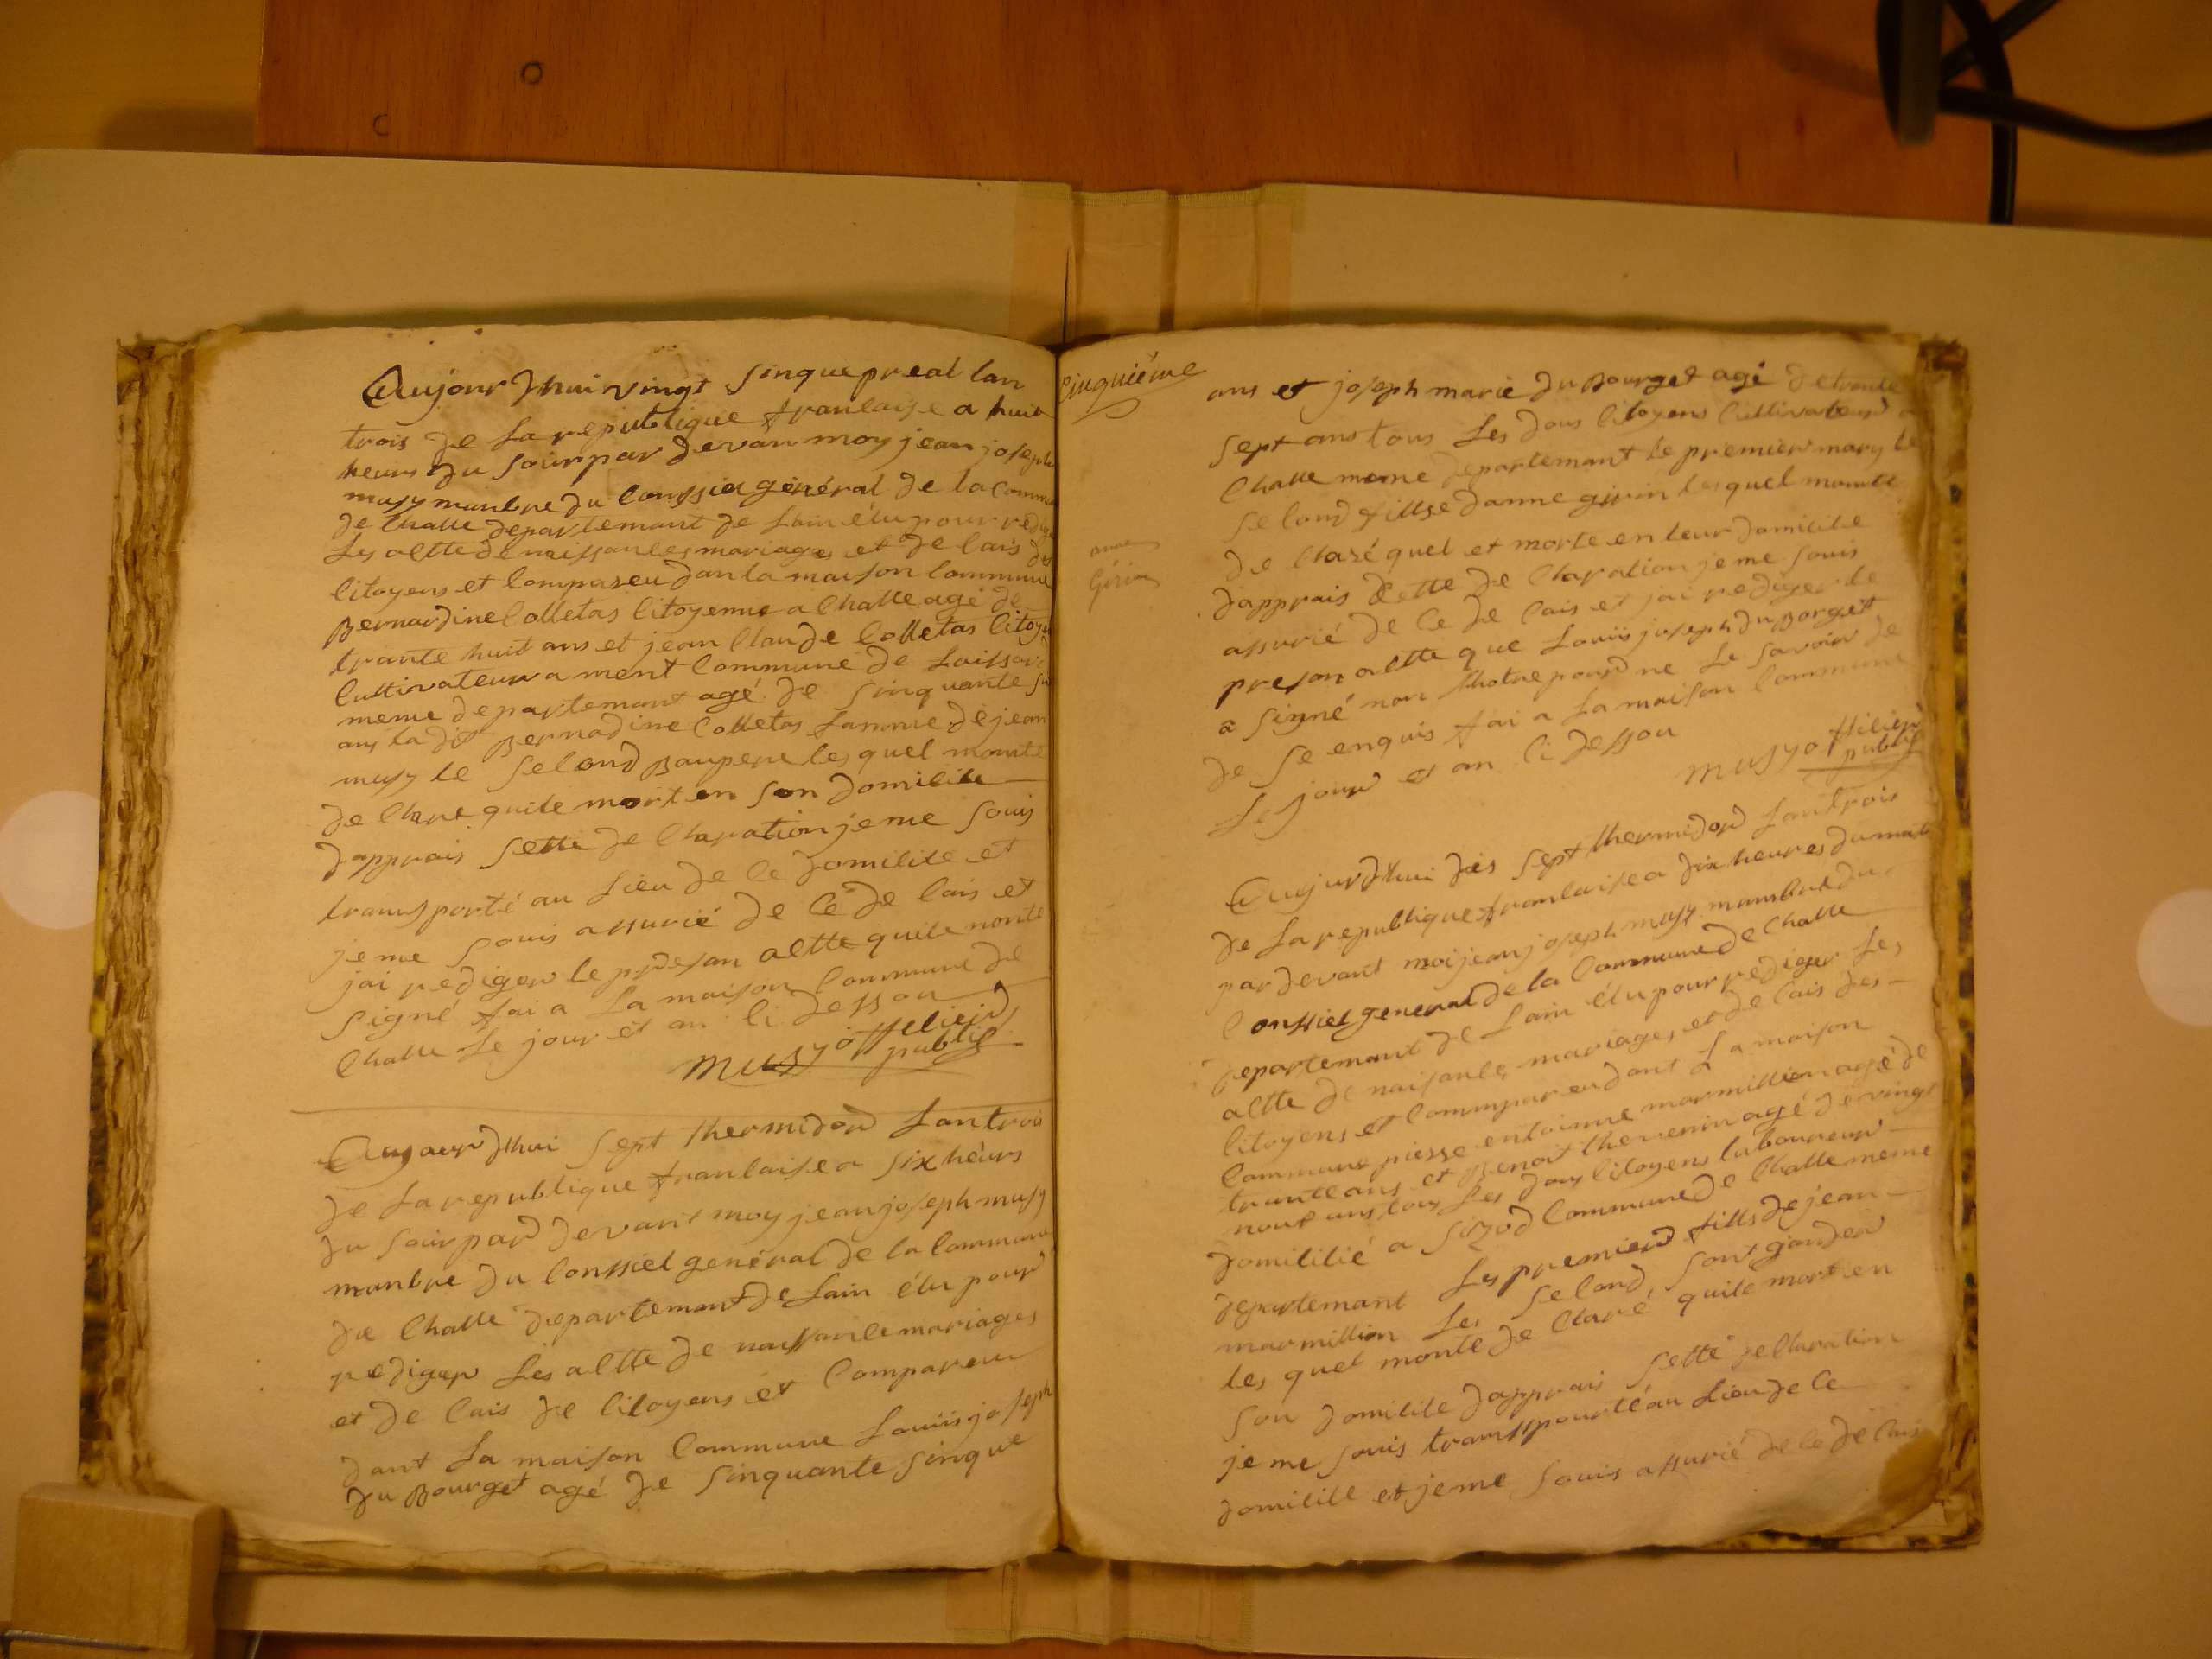 Aujour dhui vingt sinque preal lan
trois de La republique franlaise a huit
heurs du soir par devan moy jean joseph
musy manbre du Conssiel général de la Comm
de Challe departemant de Lain élu pour rediger
Les actte de naissances mariages et de lais des
Citoyens et Compareu dan la maison Commune
Bernardine Colletas Citoyenne a Challe agé de
trante huit ans et jean Claude Colletas Citoy
Cultivateur a ment Commune de
meme departemant agé de sinquante
ans la dit Bernadine Colletas famme de jean
musy le second Baupere les quel monte
de Clare quile mort en son domicile
dapprais sette de Claration je me souis
transporté au Lieu de Ce domicile et
je me souis assurié de Ce de Cais et
jai rediger le presan actte quile nonte
signé fai a La maison Commune de
Challe Le jour et an Ci dessou
musy officier
public
Aujourdhui sept thermidor Lantrois
de La republique franlaise a six heurs
du soir par devant moy jean joseph musy
manbre du Conssiel général de la Commune
de Challe departemant de Lain élu pour
rediger Les actte de naissance mariages
et de Cais de Citoyens et Compareu
dant La maison Commune Louiis joseph
du Bourget agé de sinquante sinque
Cinquiéme
ans et joseph marie du Bourget agé de trante
sept ans tous Les dous Citoyens Cultivateur a
Challe meme departemant Le premier mary le
second fillse danne girin les quel monte
de Claré quel et morte en leur domicile
anne
Gérin
dapprais Cette de Claration je me souis
assurié de Ce de Cais et jai rediger le
preson actte que Louiis joseph du Borget
a signé non Lhotre pour ne Le savoir de
de se enquis fai a La maison Commune
Le jour et an Ci dessou
musy officier
public
Aujurdhui dis sept thermidor Lantrois
de La republique franlaise a dix heures du mat
par devant moi jean joseph musy manbre du
Conssiel general de la Commune de Challe
departemant de Lain élu pour rediger Les
actte de naisance, mariages, et de Cais des
Citoyens et Commpareu dant La maison
Commune piesse entoinne marmillion agé de
trante ans et Benoit thevenin agé de vingt
nouf ans tous Les dous Citoyens laboureur
domicilié a sizod Commune de Challe meme
departemant Les premier fills de jean
marmillion Les second sont jander
les quel monte de Claré quile mort en
son domicile dapprais sette declaration
je me souis transspourté au Lieu de Ce
domicile et je me souis assurié de Ce de Cais